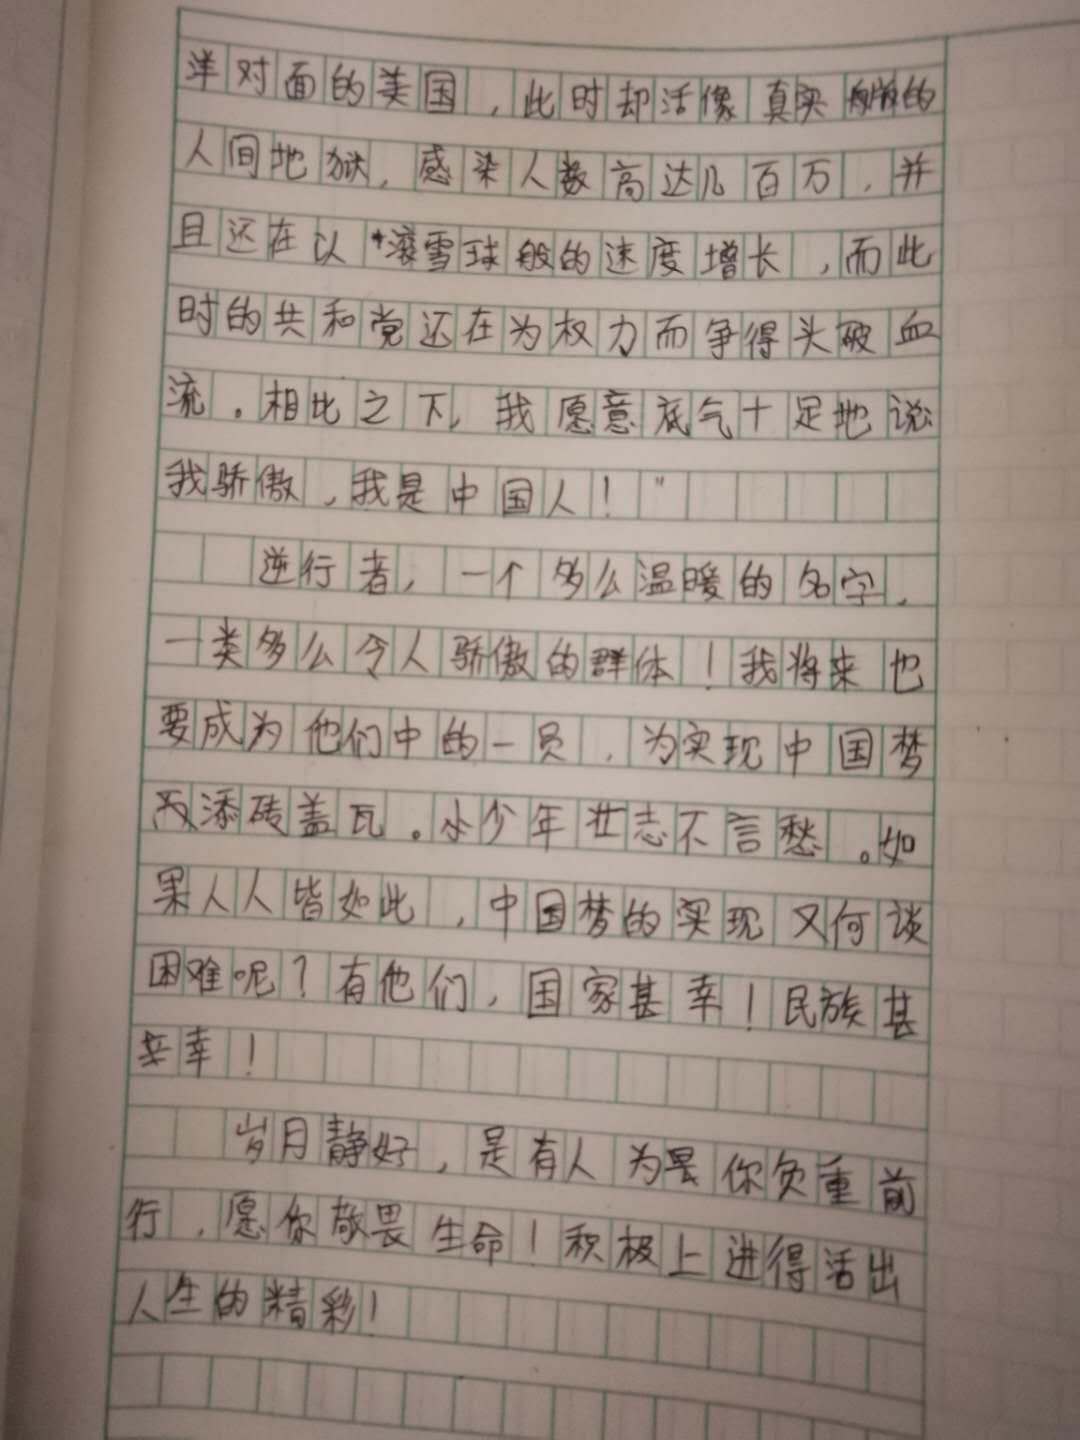 洋对面的美国，此时却活像真实版的
人间地狱，感染人数高达几百万，并
且还在以滚雪球般的速度增长，而此
时的共和党还在为权力而争得头破血
流。相比之下，我愿意底气十足地说：
我骄傲，我是中国人！"
逆行者，一个多么温暖的名字，
一类多么令人骄傲的群体！我将来也
要成为他们中的一员，为实现中国梦
而添砖盖瓦。少年壮志不言愁。如
果人人皆如此，中国梦的实现又何谈
困难呢？有他们，国家甚幸！民族甚
幸！
岁月静好，是有人为你负重前
行，愿你敬畏生命！积极上进得活出
人生的精彩！